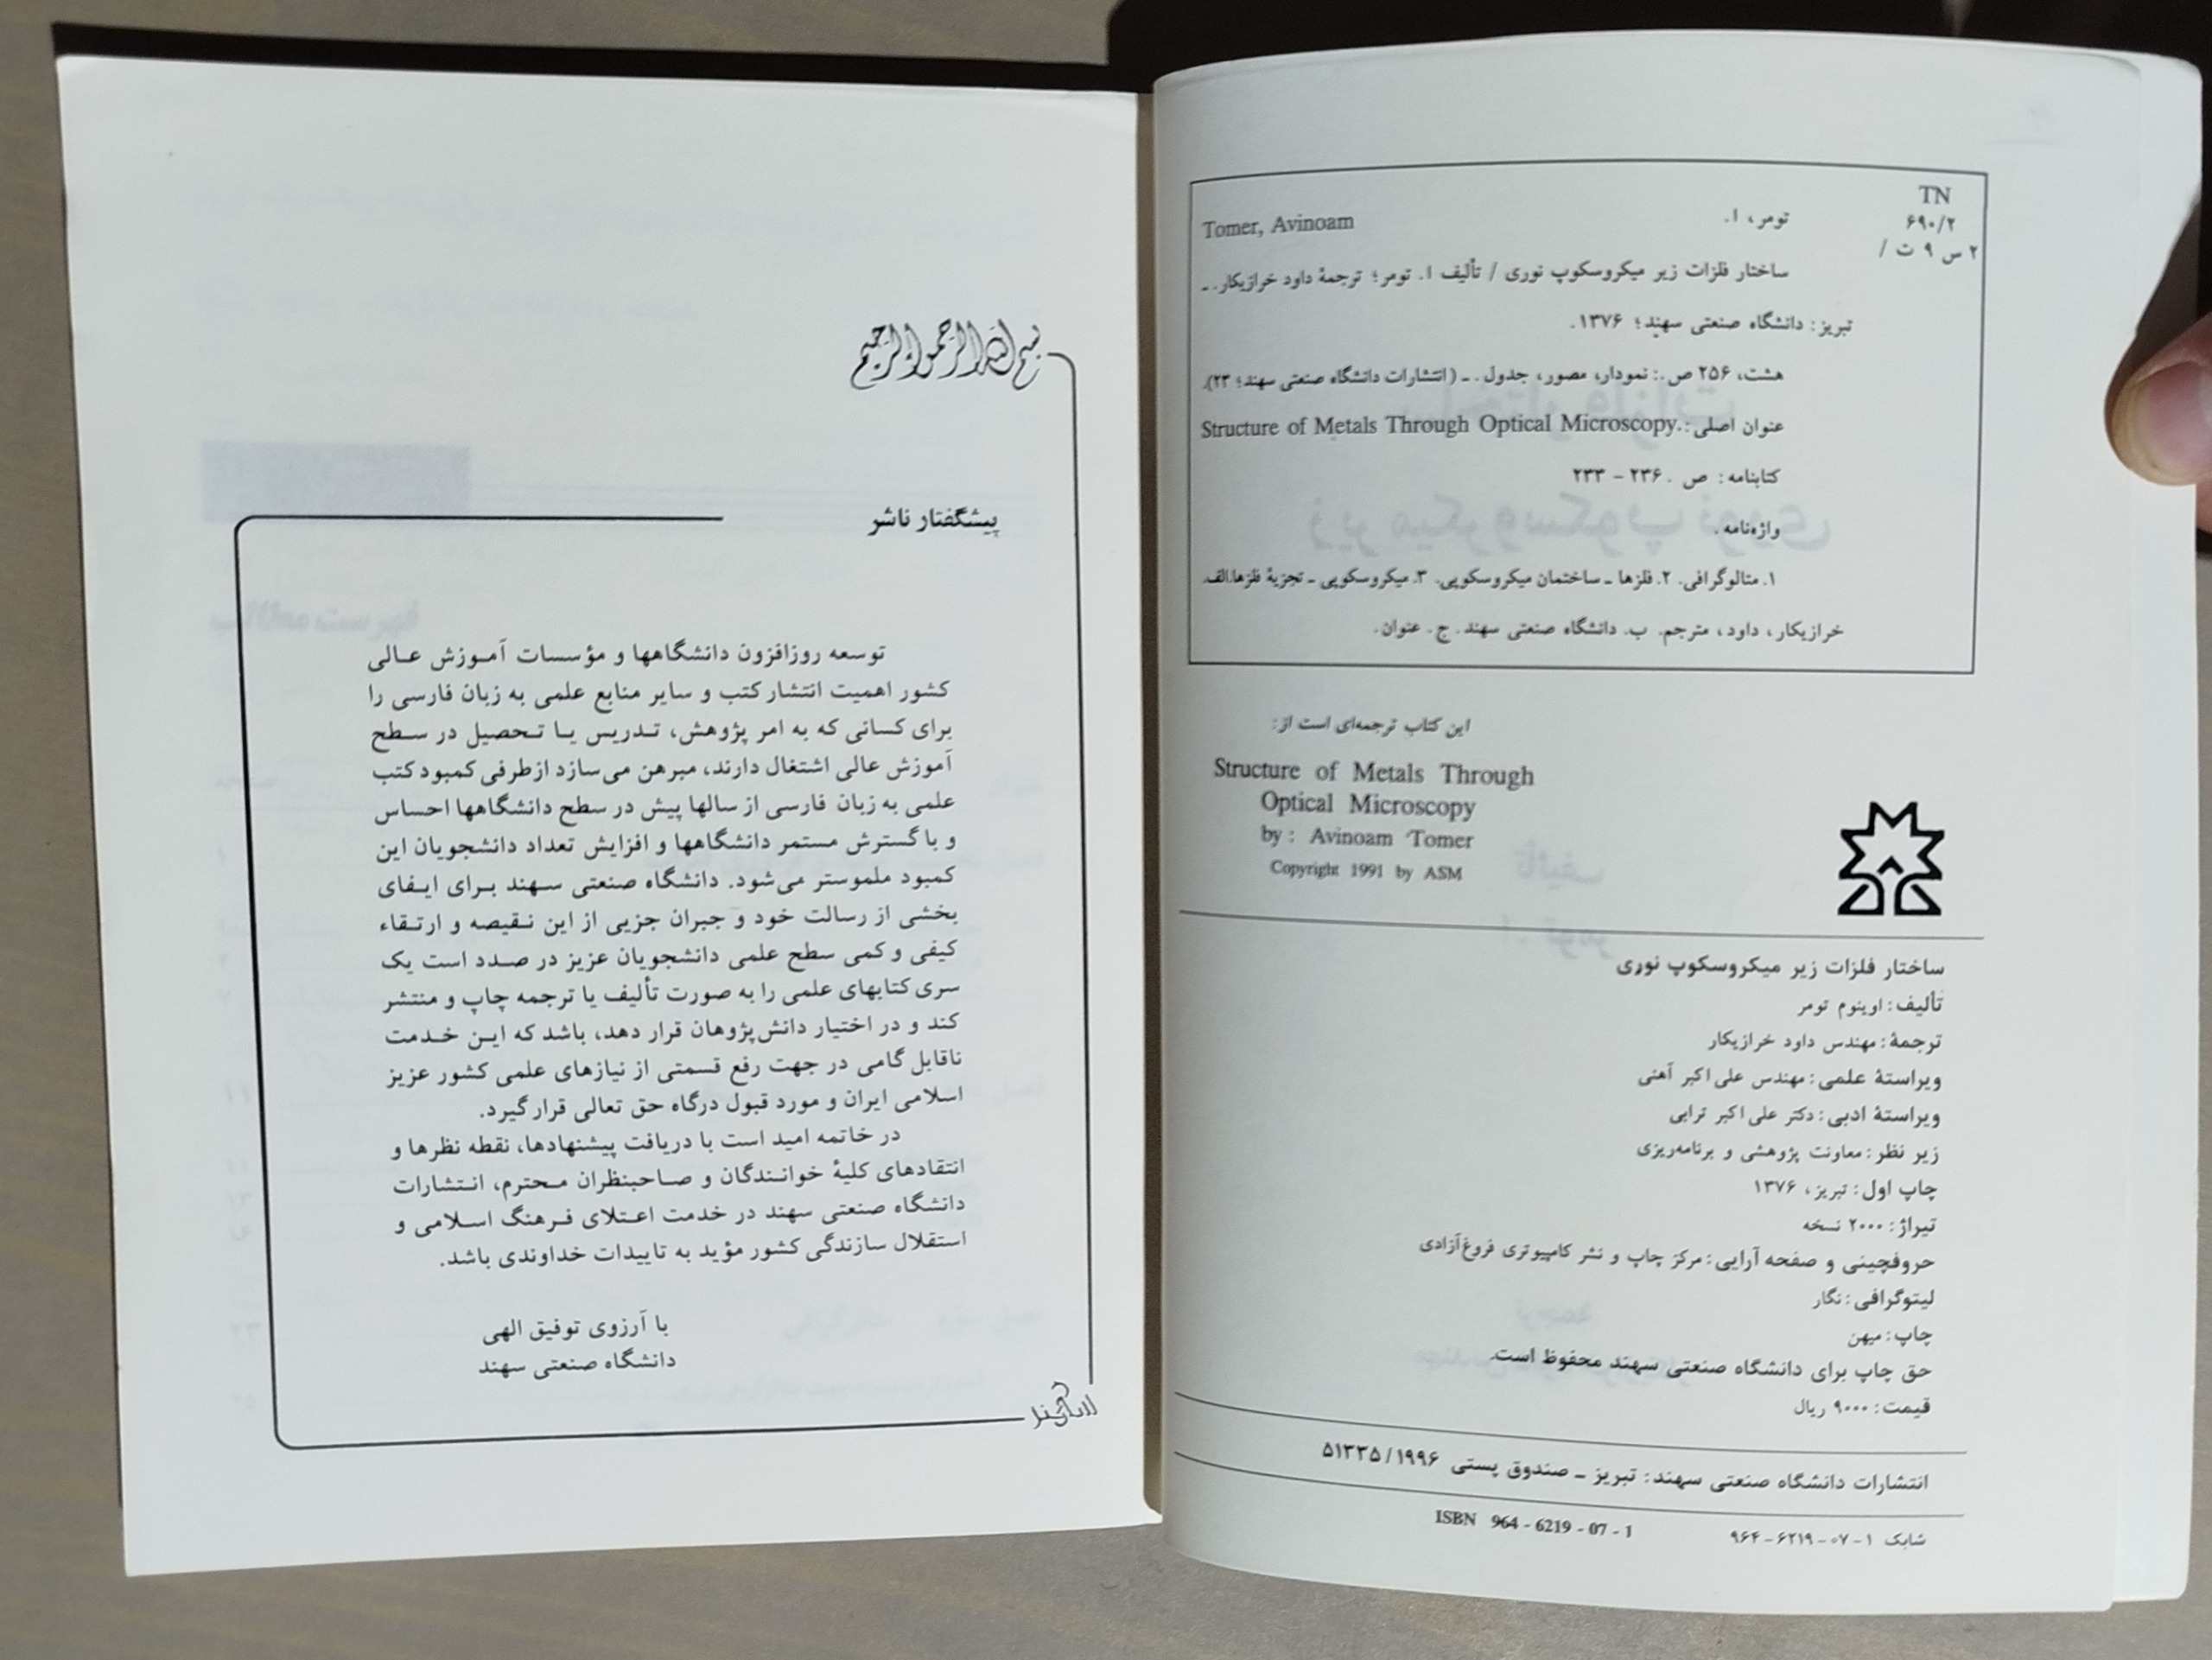 TN
۶۹۰/۲
۲ س ۹ ت /
تومر، ا. Tomer, Avinoam
ساختار فلزات زیر میکروسکوپ نوری / تألیف ا. تومر؛ ترجمهٔ داود خرازیکار. ـ
تبریز: دانشگاه صنعتی سهند؛ ۱۳۷۶.
هشت، ۲۵۶ ص.: نمودار، مصور، جدول. ـ (انتشارات دانشگاه صنعتی سهند؛ ۲۳).
عنوان اصلی: Structure of Metals Through Optical Microscopy.
کتابنامه: ص. ۲۳۶ - ۲۳۳
واژه‌نامه.
۱. متالوگرافی. ۲. فلزها ـ ساختمان میکروسکوپی. ۳. میکروسکوپی ـ تجزیهٔ فلزها. الف.
خرازیکار، داود، مترجم. ب. دانشگاه صنعتی سهند. ج. عنوان.
این کتاب ترجمه‌ای است از:
Structure of Metals Through
Optical Microscopy
by : Avinoam Tomer
Copyright 1991 by ASM
ساختار فلزات زیر میکروسکوپ نوری
تألیف: اوینوم تومر
ترجمهٔ: مهندس داود خرازیکار
ویراستهٔ علمی: مهندس علی‌اکبر آهنی
ویراستهٔ ادبی: دکتر علی‌اکبر ترابی
زیر نظر: معاونت پژوهشی و برنامه‌ریزی
چاپ اول: تبریز، ۱۳۷۶
تیراژ: ۲۰۰۰ نسخه
حروفچینی و صفحه آرایی: مرکز چاپ و نشر کامپیوتری فروغ‌آزادی
لیتوگرافی: نگار
چاپ: میهن
حق چاپ برای دانشگاه صنعتی سهند محفوظ است.
قیمت: ۹۰۰۰ ریال
انتشارات دانشگاه صنعتی سهند: تبریز ـ صندوق پستی ۵۱۳۳۵/۱۹۹۶
شابک ۱-۰۷-۶۲۱۹-۹۶۴ ISBN 964 - 6219 - 07 - 1
بسم الله الرحمن الرحیم
پیشگفتار ناشر
توسعه روزافزون دانشگاهها و مؤسسات آموزش عالی
کشور اهمیت انتشار کتب و سایر منابع علمی به زبان فارسی را
برای کسانی که به امر پژوهش، تدریس یا تحصیل در سطح
آموزش عالی اشتغال دارند، مبرهن می‌سازد ازطرفی کمبود کتب
علمی به زبان فارسی از سالها پیش در سطح دانشگاهها احساس
و با گسترش مستمر دانشگاهها و افزایش تعداد دانشجویان این
کمبود ملموستر می‌شود. دانشگاه صنعتی سهند برای ایفای
بخشی از رسالت خود و جبران جزیی از این نقیصه و ارتقاء
کیفی و کمی سطح علمی دانشجویان عزیز در صدد است یک
سری کتابهای علمی را به صورت تألیف یا ترجمه چاپ و منتشر
کند و در اختیار دانش‌پژوهان قرار دهد، باشد که این خدمت
ناقابل گامی در جهت رفع قسمتی از نیازهای علمی کشور عزیز
اسلامی ایران و مورد قبول درگاه حق تعالی قرار گیرد.
در خاتمه امید است با دریافت پیشنهادها، نقطه نظرها و
انتقادهای کلیهٔ خوانندگان و صاحبنظران محترم، انتشارات
دانشگاه صنعتی سهند در خدمت اعتلای فرهنگ اسلامی و
استقلال سازندگی کشور مؤید به تاییدات خداوندی باشد.
با آرزوی توفیق الهی
دانشگاه صنعتی سهند
سهند